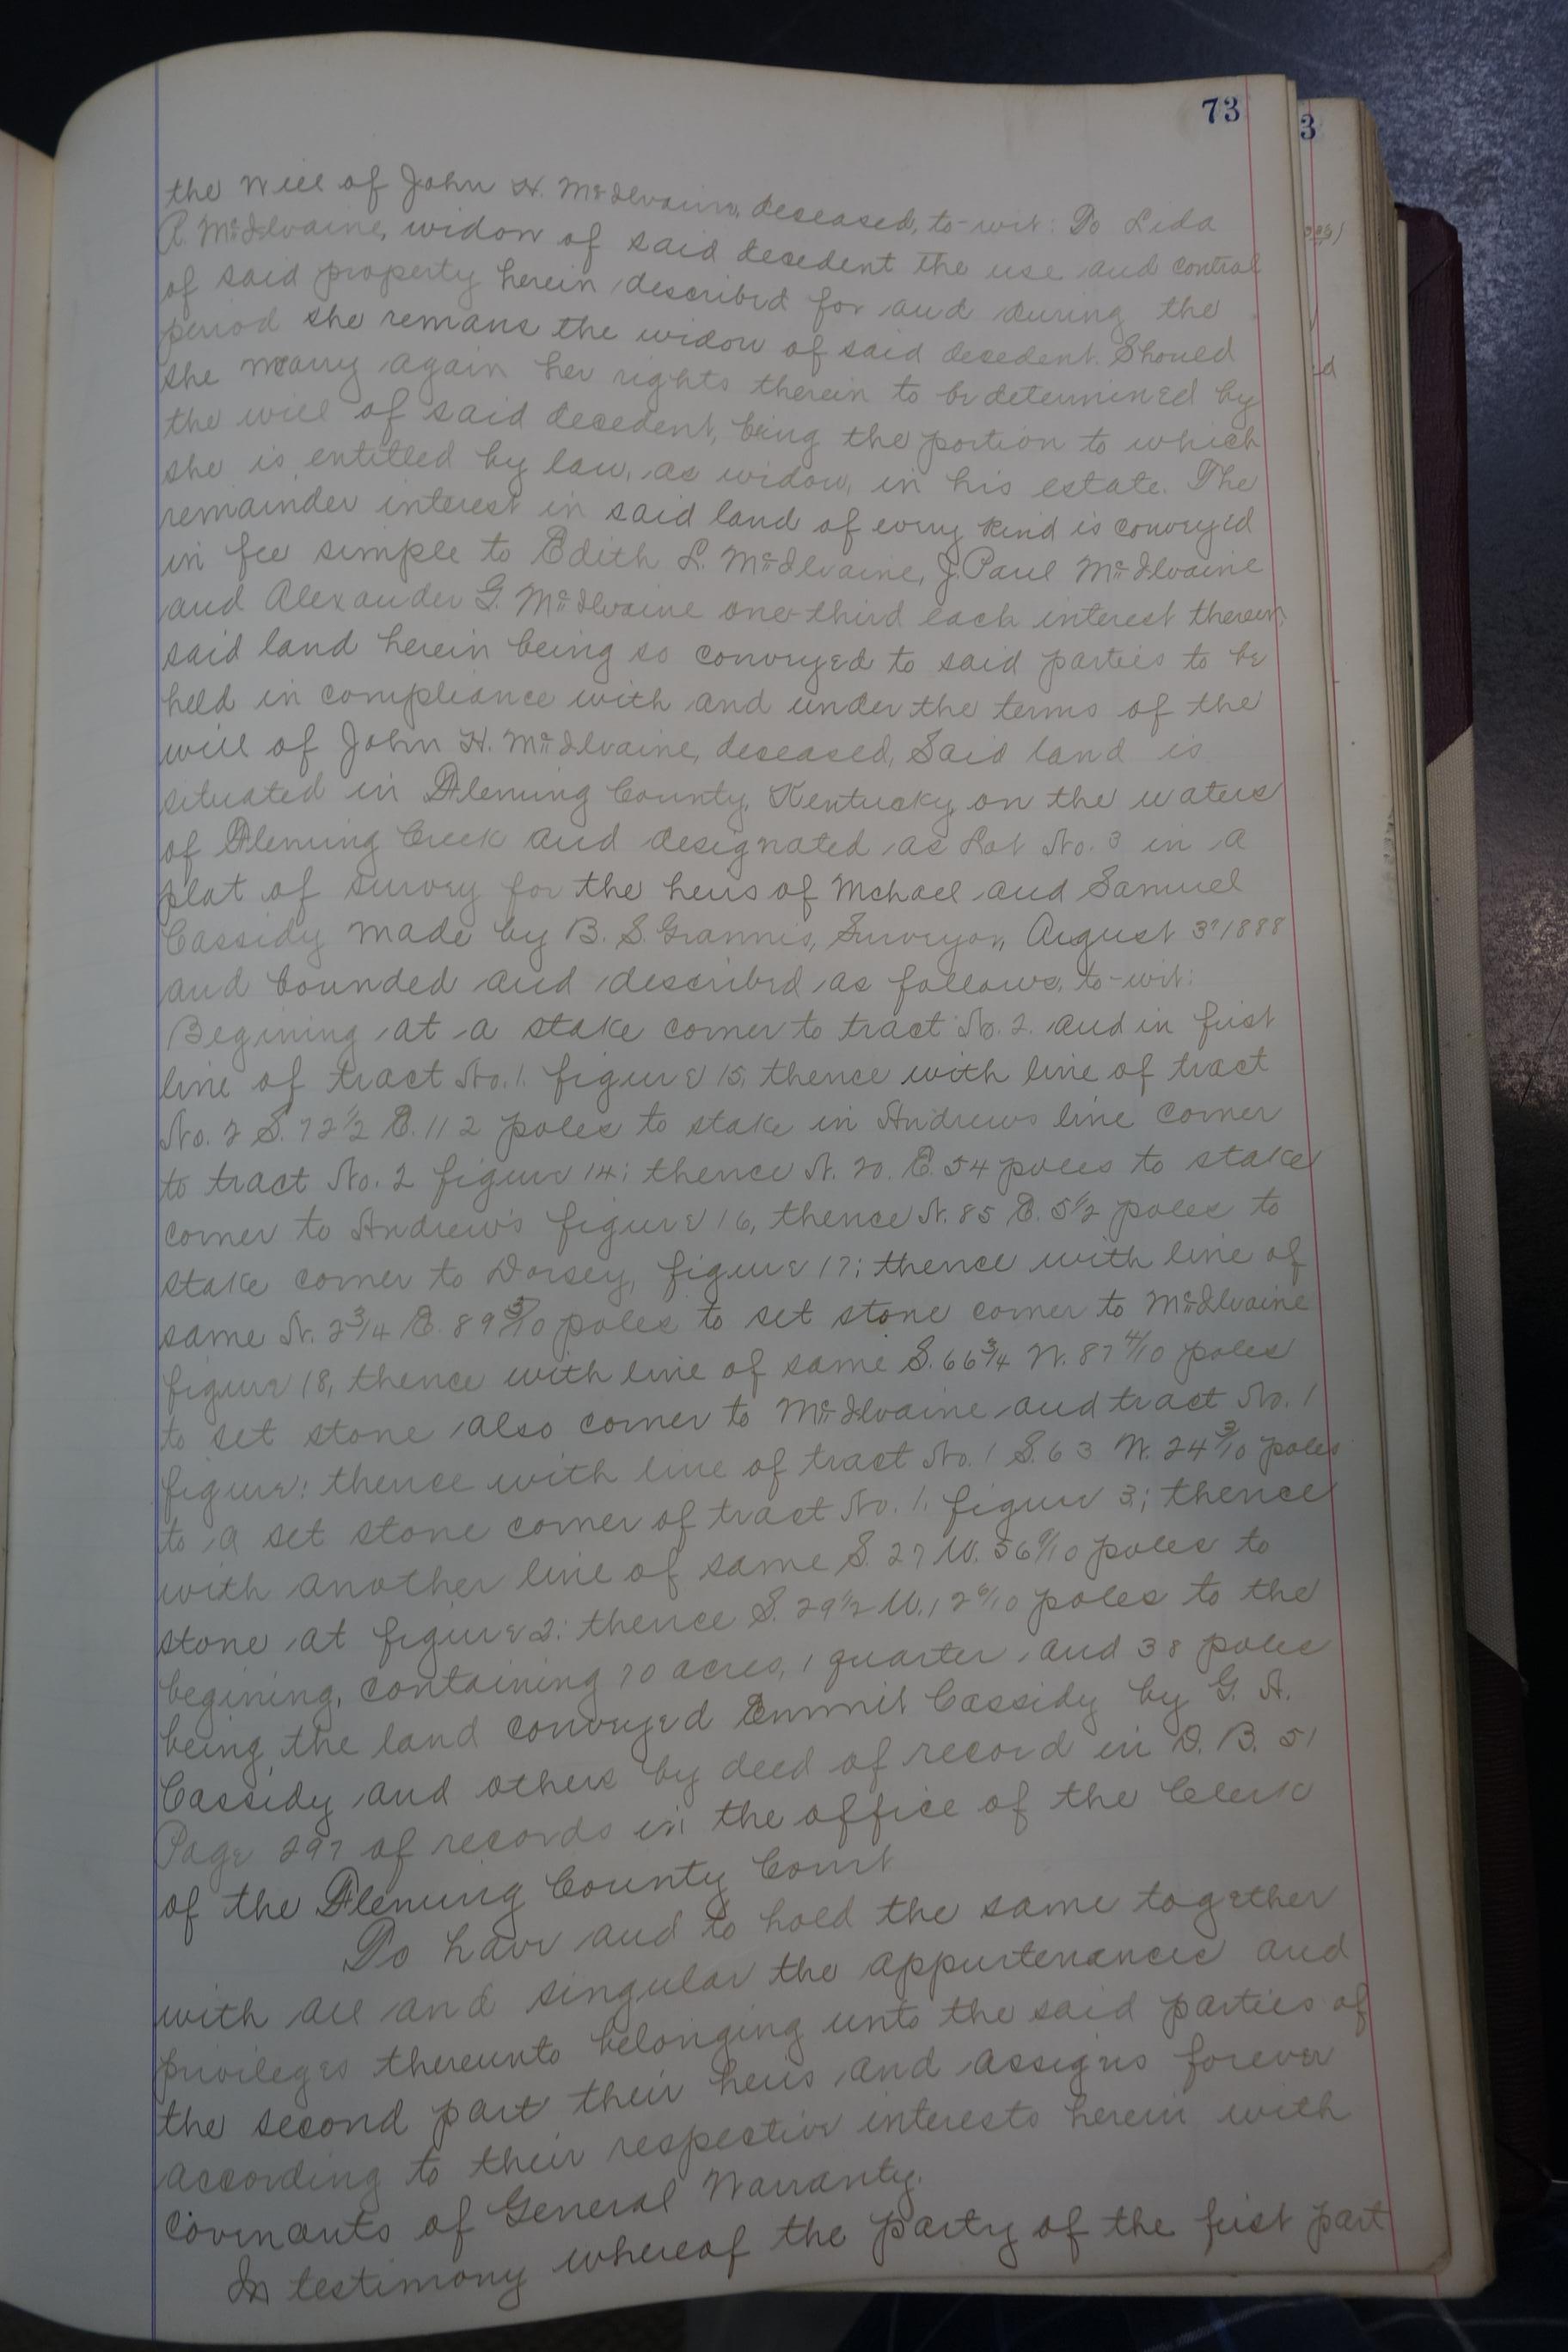 73
3
the will of John H. McIlvaine, deseased, to-wit: To Lida
A. McIlvaine, widow of said decedent the use and control
of said property herein described for and during the
period she remans the widow of said decedent. Should
she marry again her rights therein to be determined by
the will of said decedent, being the portion to which
she is entitled by law, as widow, in his estate. The
remainder interest in said land of every kind is conveyed
in fee simple to Edith L. McIlvaine, J. Paul McIlvaine
and Alexander G. McIlvaine one-third each interest therein,
said land herein being so conveyed to said parties to be
held in compliance with and under the terms of the
will of John H. McIlvaine, deseased, Said land is
situated in Fleming County, Kentucky, on the waters
of Fleming Creek and designated as Lot No. 3 in a
plat of survey for the heirs of Mchael and Samuel
Cassidy made by B. S. Grannis, Surveyor, August 3" 1888
and bounded and described as follows, to-wit:
Begining at a stake corner to tract No. 2. and in first
line of tract No. 1. figure 15, thence with line of tract
No. 2 S. 72 1/2 E. 112 poles to stake in Andrews line corner
to tract No. 2 figure 14; thence N. 20. E. 54 poles to stake
corner to Andrew's figure 16, thence N. 85 E. 5 1/2 poles to
stake corner to Dorsey, figure 17; thence with line of
same N. 2 3/4 E. 89 3/10 poles to set stone corner to McIlvaine
figure 18, thence with line of same S. 66 3/4 W. 87 4/10 poles
to set stone also corner to McIlvaine and tract No. 1
figure: thence with line of tract No. 1 S. 63 W. 24 3/10 poles
to a set stone corner of tract No. 1. figure 3; thence
with another line of same S. 27 W. 56 9/10 poles to
stone at figure 2: thence S. 29 1/2 W. 12 6/10 poles to the
begining, containing 70 acres, 1 quarter and 38 poles
being the land conveyed Emmit Cassidy by G. A.
Cassidy and others by deed of record in D. B. 51
Page 297 of records in the office of the Clerk
of the Fleming County Court
To have and to hold the same together
with all and singular the appurtenances and
privileges thereunto belonging unto the said parties of
the second part their heirs and assigns forever
according to their respective interests herein with
covenants of General Warranty.
In testimony whereof the party of the first part